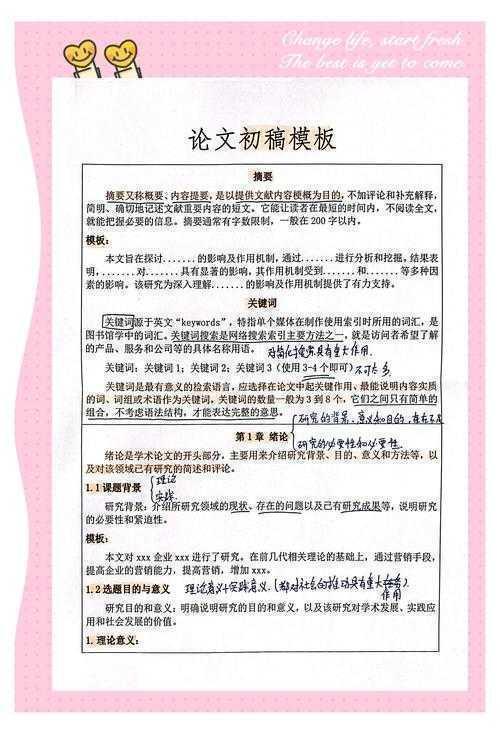 Change life, start fresh
The best is yet to come
论文初稿模板
摘要
摘要又称概要、内容提要,是以提供文献内容梗概为目的,不加评论和补充解释,
简明、确切地记述文献重要内容的短文。它能让读者在最短的时间内,不阅读全文,
就能把握必要的信息。摘要通常有字数限制,一般在 200 字以内。
模板:
本文旨在探讨.......的影响及作用机制,通过.......进行分析和挖掘。结果表
明,.......对.......具有显著的影响,其作用机制受到.......和.......等多种因
素的影响。该研究为深入理解.......的影响及作用机制提供了有力支持。
关键词
关键词源于英文“keywords”,特指单个媒体在制作使用索引时所用的词汇,是
图书馆学中的词汇。关键词搜索是网络搜索索引主要方法之一,就是访问者希望了解
的产品、服务和公司等的具体名称用语。 对简化搜索具有重大作用.
关键词:关键词 1;关键词 2;关键词 3(使用 3-4 个即可) 不可太多
关键词是最有意义的检索语言,应选择在论文中起关键作用、最能说明内容实质
的词、词组或术语作为关键词,关键词的数量一般为 3 到 8 个,它们之间只有简单的
组合,不考虑语法结构,才能表达完整的意思。
研究的背景、意义和目的,
第 1 章 绪论
研究的必要性
绪论是学术论文的开头部分,主要用来介绍研究背景、目的、意义和方法等,以
及对该领域已有研究的简述和评论。
1.1 课题背景 理论
实践
研究背景:介绍所研究领域的现状、存在的问题以及已有研究成果等,说明研究
的必要性和紧迫性。
模板:
本文对 xxx 企业 xxx 进行了研究。在前几代相关理论的基础上,通过营销手段,
提高企业的营销能力,提高营销,增加 xxx。
1.2 选题目的与意义 理论意义+实践意义.(都对社会的推动具有重大任务)
作用
研究目的和意义:明确说明研究的目的和意义,以及该研究对学术发展、实践应
用和社会发展的价值。
1. 理论意义: